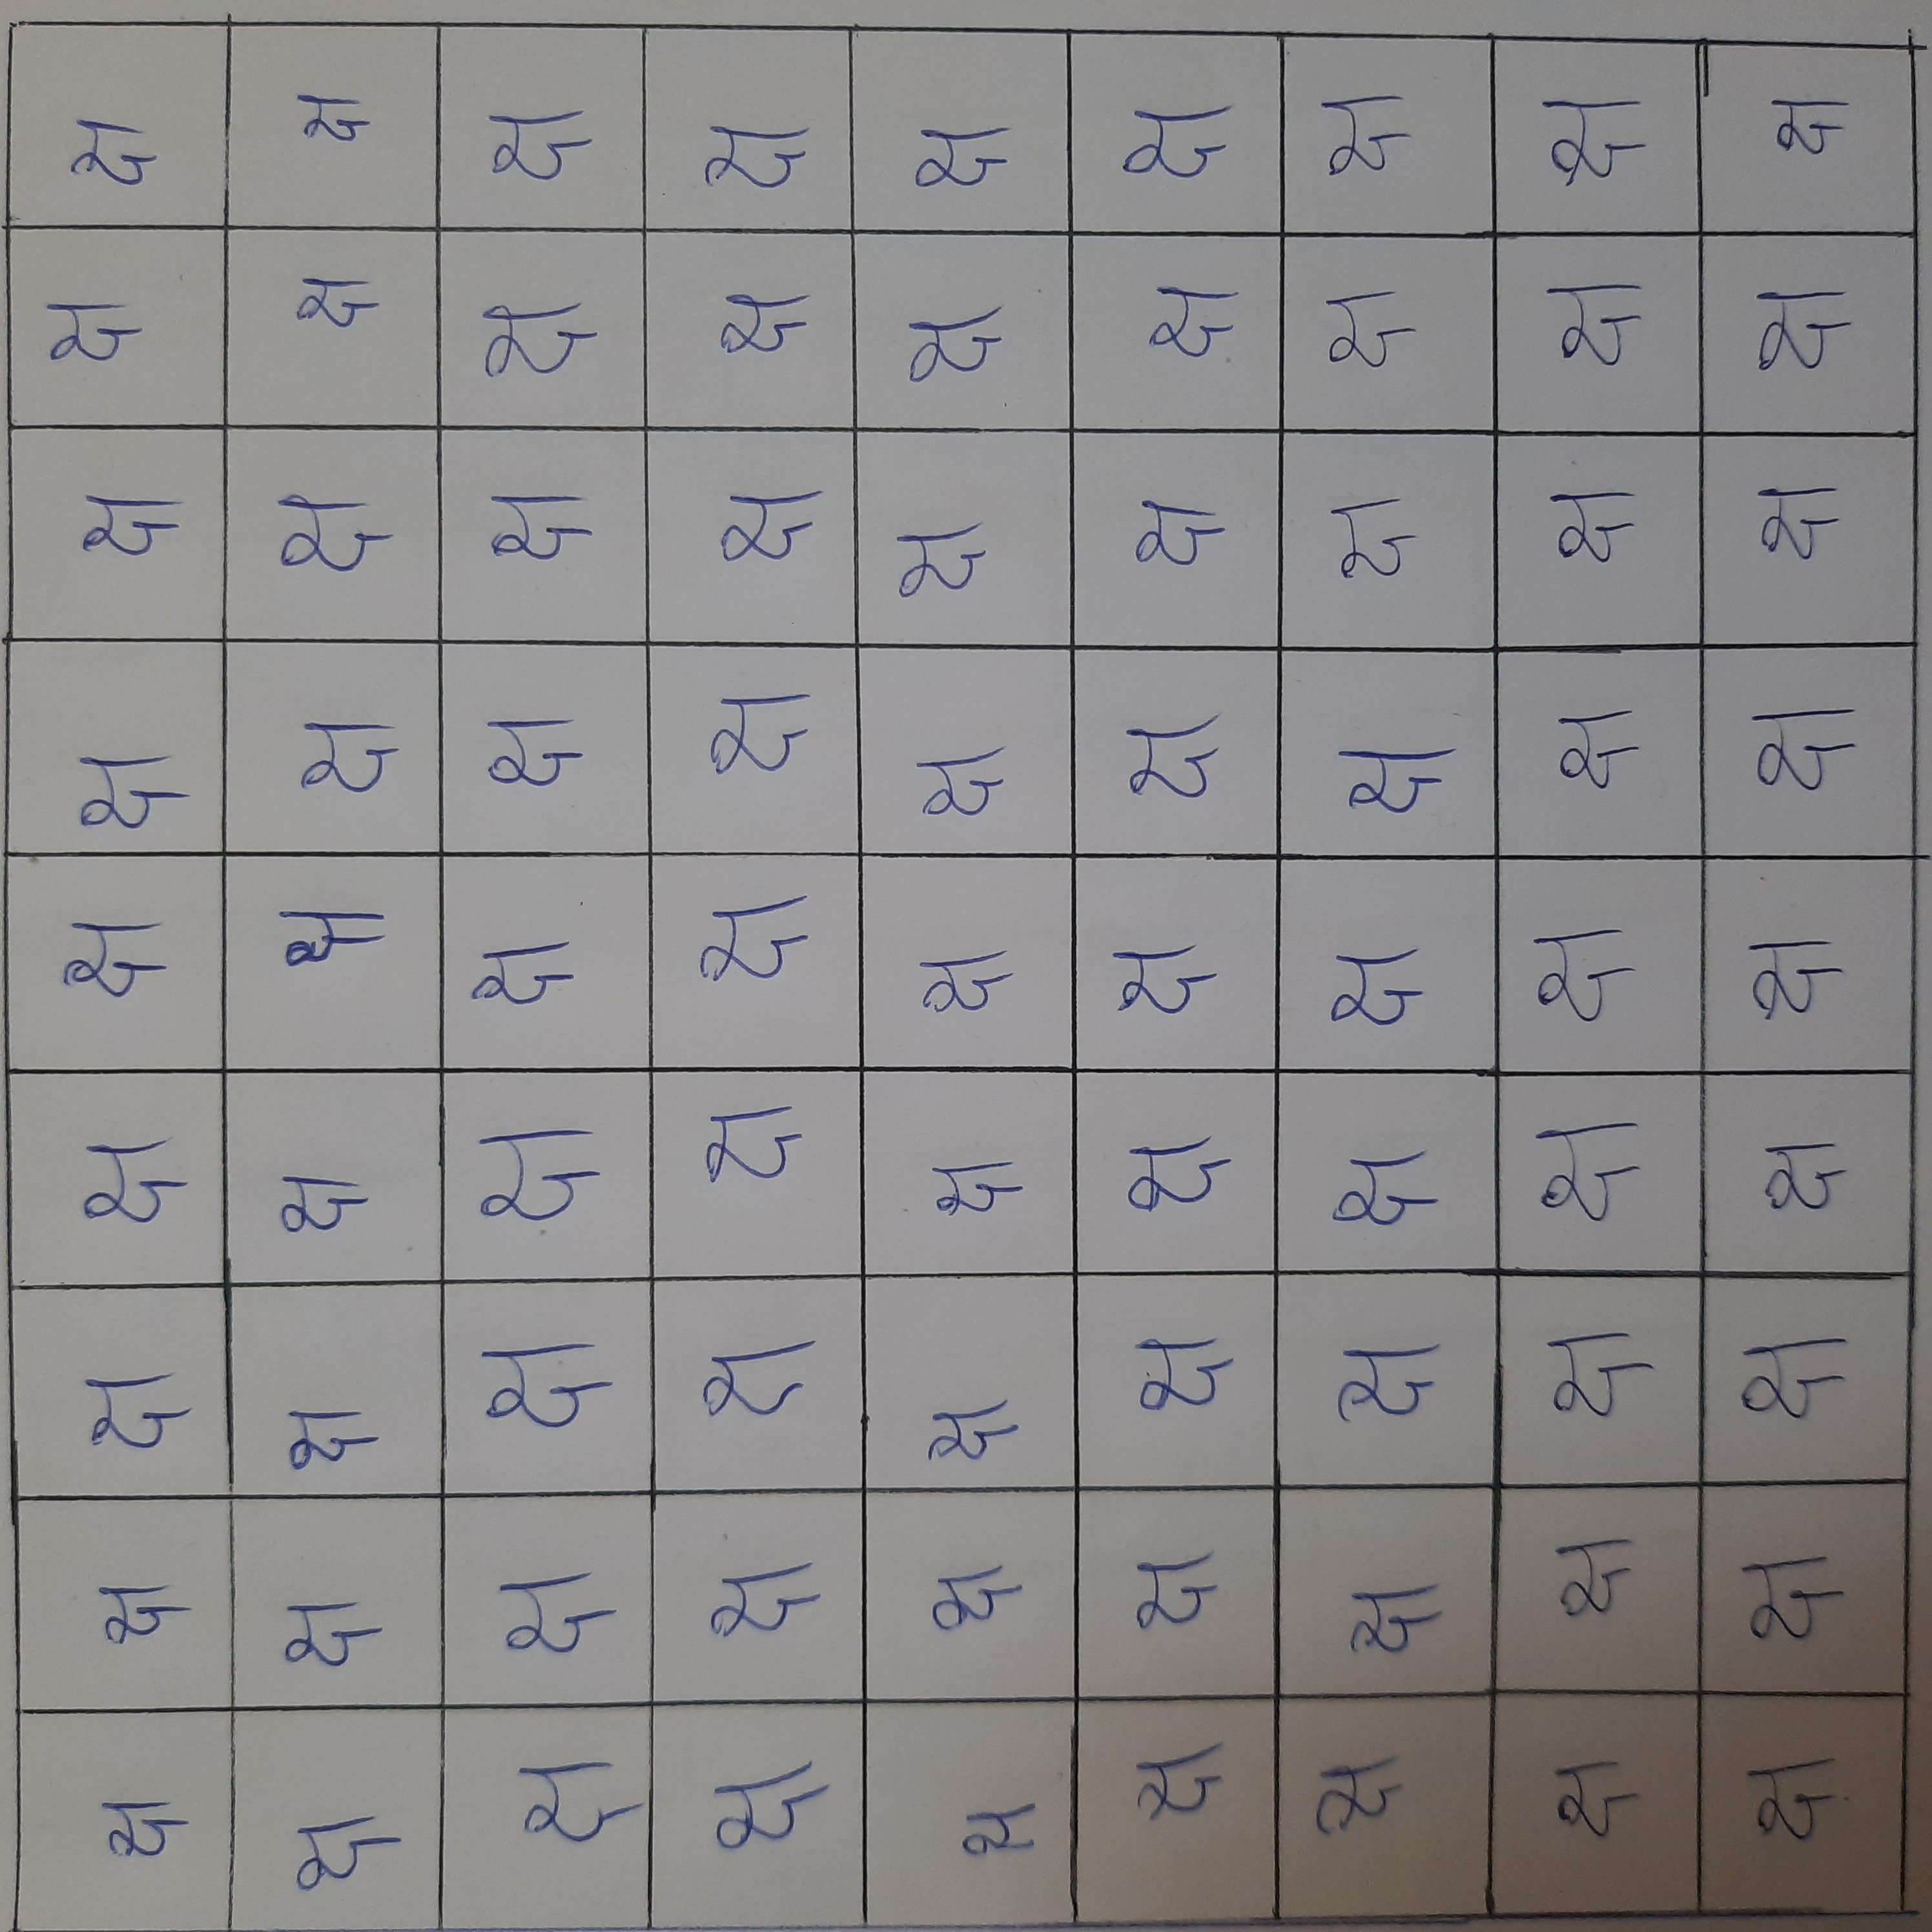 क्ष क्ष क्ष क्ष क्ष क्ष क्ष क्ष क्ष
क्ष क्ष क्ष क्ष क्ष क्ष क्ष क्ष क्ष
क्ष क्ष क्ष क्ष क्ष क्ष क्ष क्ष क्ष
क्ष क्ष क्ष क्ष क्ष क्ष क्ष क्ष क्ष
क्ष क्ष क्ष क्ष क्ष क्ष क्ष क्ष क्ष
क्ष क्ष क्ष क्ष क्ष क्ष क्ष क्ष क्ष
क्ष क्ष क्ष क्ष क्ष क्ष क्ष क्ष क्ष
क्ष क्ष क्ष क्ष क्ष क्ष क्ष क्ष क्ष
क्ष क्ष क्ष क्ष क्ष क्ष क्ष क्ष क्ष